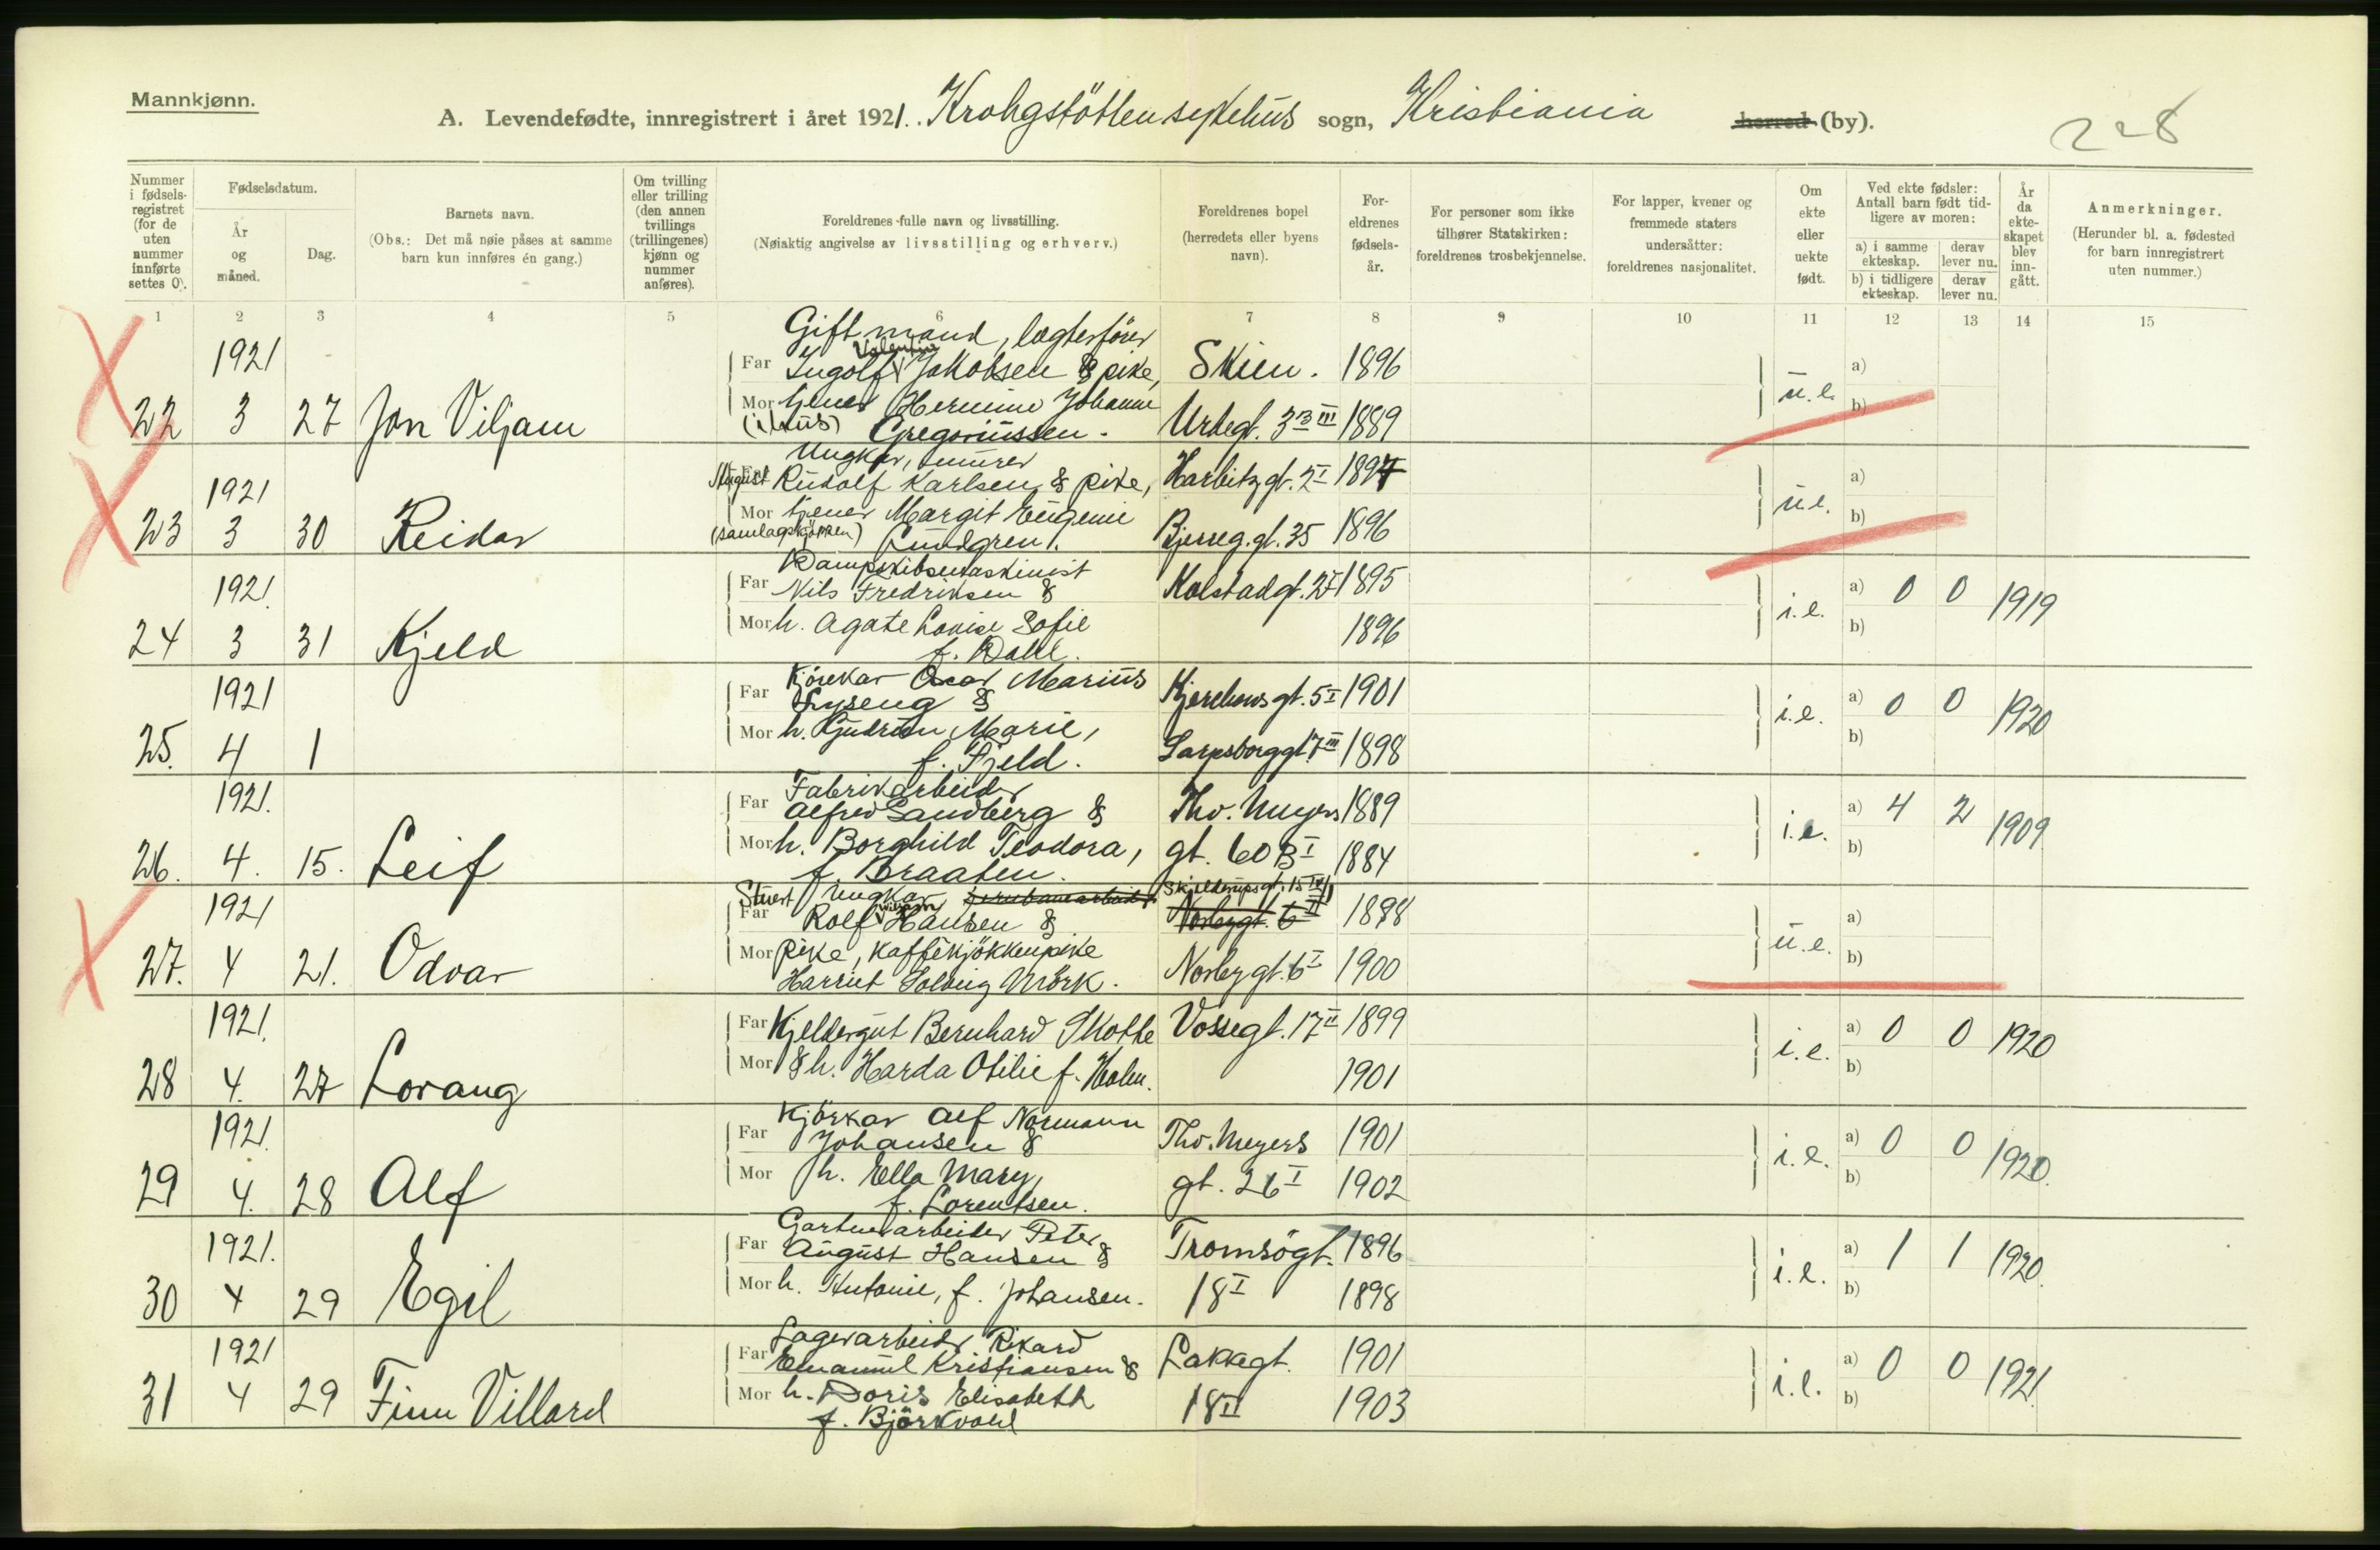 Mannkjønn.
A. Levendefødte, innregistrert i året 1921. Krohgstöttensykehus sogn, Kristiania herred (by).
228
Nummer i fødselsregistret (for de uten nummer innførte settes 0).
Fødselsdatum.
År og måned.
Dag.
Barnets navn.
(Obs.: Det må nøie påses at samme barn kun innføres én gang.)
Om tvilling eller trilling (den annen tvillings (trillingenes) kjønn og nummer anføres).
Foreldrenes fulle navn og livsstilling.
(Nøiaktig angivelse av livsstilling og erhverv.)
Foreldrenes bopel (herredets eller byens navn).
Foreldrenes fødselsår.
For personer som ikke tilhører Statskirken: foreldrenes trosbekjennelse.
For lapper, kvener og fremmede staters undersåtter: foreldrenes nasjonalitet.
Om ekte eller uekte født.
Ved ekte fødsler: Antall barn født tidligere av moren:
a) i samme ekteskap. derav lever nu.
b) i tidligere ekteskap. derav lever nu.
År da ekteskapet blev inngått.
Anmerkninger.
(Herunder bl. a. fødested for barn innregistrert uten nummer.)
1 2 3 4 5 6 7 8 9 10 11 12 13 14 15
Gift mand, lægterförer
1921 Far Ingolf Valentin Jakobsen & pike, Skien. 1896 a)
22 3 27 Jon Viljam Mor tjener Hermine Johanne u.e. b)
(i hus) Gregoriussen. Urtegt. 3 B III 1889
Ungkar, murer
1921 August Far Rudolf Karlsen & pike, Harbitzgt. 2 I 1897 a)
23 3 30 Reidar Mor tjener Margit Eugenie u.e. b)
(samlagskjökken) Lundgren. Bjerreg.gt. 35 1896
Dampskibsmaskinist
1921. Far Nils Fredriksen & Kolstadgt. 2 I 1895 a) 0 0 1919
24 3 31 Kjeld Mor h. Agate Louise Sofie 1896 i.e. b)
f. Dahl.
Kjörekar Oscar Marius
1921 Far Lyseng & Kjerchowsgt. 5 I 1901 a) 0 0 1920
25. 4 1 Mor h. Gudrun Marie, i.e. b)
f. Fjeld. Sarpsborggt. 7 III 1898
Fabrikarbeider
1921. Far Alfred Sandberg & Thv. Meyers 1889 a) 4 2 1909
26. 4. 15. Leif Mor h. Borghild Teodora, gt. 60 B I 1884 i.e. b)
f. Braaten.
Stuert Ungkar, Skjelderupsgt. 15 IV
1921 Far Rolf William Hansen & Norbygt. 6 II 1898 a)
27. 4 21. Odvar Mor pike, kaffekjökkenpike u.e. b)
Harriet Solveig Mörk. Norbygt. 6 I 1900
1921. Far Kjeldergut Bernhard Skotte Vossegt. 17 II 1899 a) 0 0 1920
28 4. 27 Lorang Mor & h. Harda Otilie f. Holm. 1901 i.e. b)
Kjörkar Alf Normann
1921. Far Johansen & Thv. Meyers 1901 a) 0 0 1920.
29 4. 28 Alf Mor h. Ella Mary, gt. 26 I 1902 i.e. b)
f. Lorentsen.
Gartnerarbeider Peter
1921. Far August Hansen & Tromsögt. 1896 a) 1 1 1920.
30 4 29 Egil Mor h. Antonie, f. Johansen. 18 I 1898 i.e. b)
Lagerarbeider Rikard
1921 Far Emanuel Kristiansen & Lakkegt. 1901 a) 0 0 1921.
31 4 29 Finn Villard Mor h. Doris Elisabeth 18 II 1903 i.e. b)
f. Björkvahl